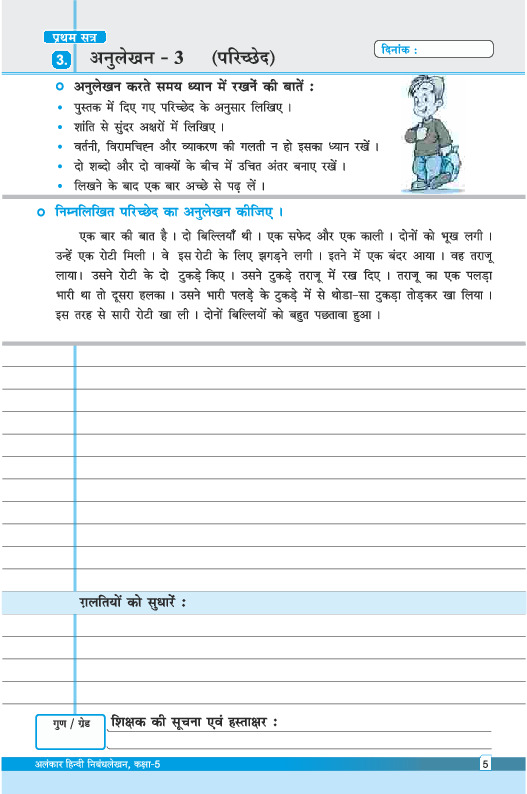 प्रथम सत्र
3. अनुलेखन - 3 (परिच्छेद)
दिनांक :
अनुलेखन करते समय ध्यान में रखनें की बातें :
• पुस्तक में दिए गए परिच्छेद के अनुसार लिखिए ।
• शांति से सुंदर अक्षरों में लिखिए ।
• वर्तनी, विरामचिह्न और व्याकरण की गलती न हो इसका ध्यान रखें ।
• दो शब्दो और दो वाक्यों के बीच में उचित अंतर बनाए रखें ।
• लिखने के बाद एक बार अच्छे से पढ़ लें ।
निम्नलिखित परिच्छेद का अनुलेखन कीजिए ।
एक बार की बात है । दो बिल्लियाँ थी । एक सफेद और एक काली । दोनों को भूख लगी ।
उन्हें एक रोटी मिली । वे इस रोटी के लिए झगड़ने लगी । इतने में एक बंदर आया । वह तराजू
लाया। उसने रोटी के दो टुकड़े किए । उसने टुकड़े तराजू में रख दिए । तराजू का एक पलड़ा
भारी था तो दूसरा हलका । उसने भारी पलड़े के टुकड़े में से थोडा-सा टुकड़ा तोड़कर खा लिया ।
इस तरह से सारी रोटी खा ली । दोनों बिल्लियों को बहुत पछतावा हुआ ।
ग़लतियों को सुधारें :
गुण / ग्रेड
शिक्षक की सूचना एवं हस्ताक्षर :
अलंकार हिन्दी निबंधलेखन, कक्षा-5
5